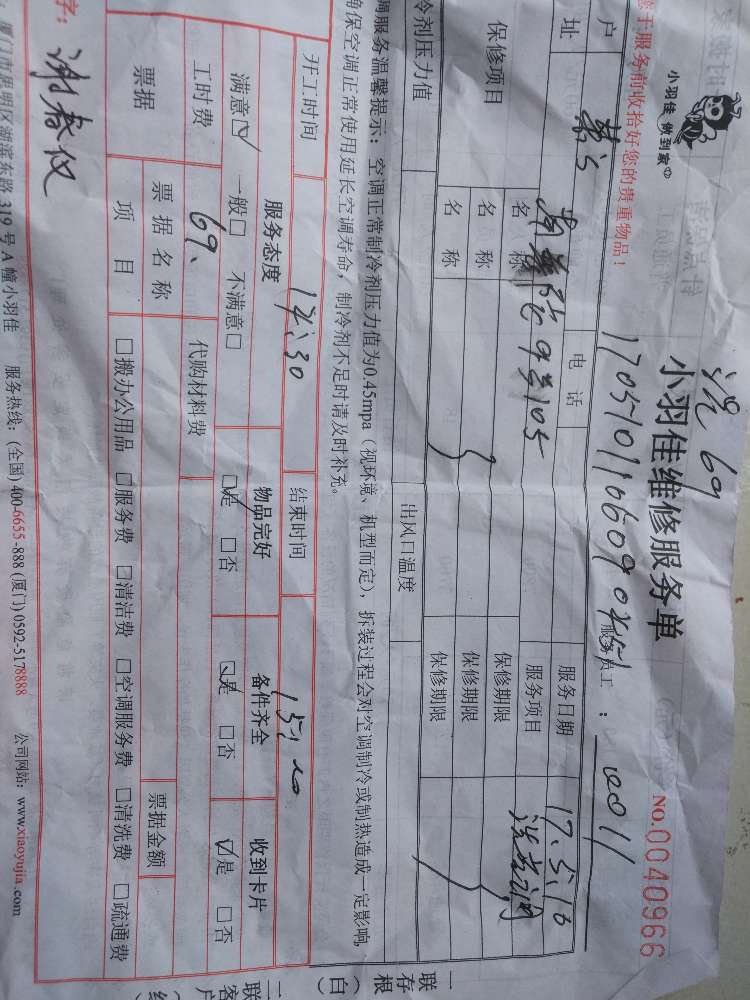 洗 69
小羽佳 做到家
小羽佳维修服务单
NO.0040966
于服务前收拾好您的贵重物品！
服务员工：001
户
电话
17051011060909451
服务日期
17.5.13
址
服务项目
洗空调
保修项目
名称
保修期限
名称
保修期限
名称
保修期限
冷剂压力值
出风口温度
调服务温馨提示：空调正常制冷剂压力值为0.45mpa（视环境、机型而定），拆装过程会对空调制冷或制热造成一定影响，
确保空调正常使用延长空调寿命，制冷剂不足时请及时补充。
开工时间
14:30
结束时间
15:20
服务态度
物品完好
备件齐全
收到卡片
满意☑ 一般□ 不满意□
☑是 □否
☑是 □否
☑是 □否
工时费
69.
代购材料费
票据
票据名称
票据金额
项目
□搬办公用品 □服务费 □清洁费 □空调服务费 □清洗费 □疏通费
字：
谢春仪
厦门市思明区湖滨东路319号A幢小羽佳 服务热线：(全国)400-6655-888 (厦门)0592-5178888 公司网站：www.xiaoyujia.com
一联存根（白
二联客户